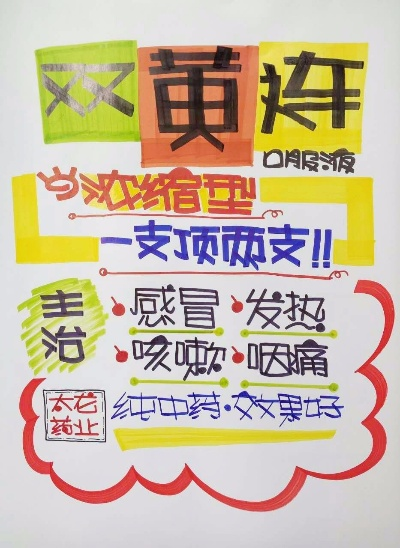 双黄连
口服液
浓缩型
一支顶两支!!
主治
感冒 发热
咳嗽 咽痛
太龙药业
纯中药·效果好